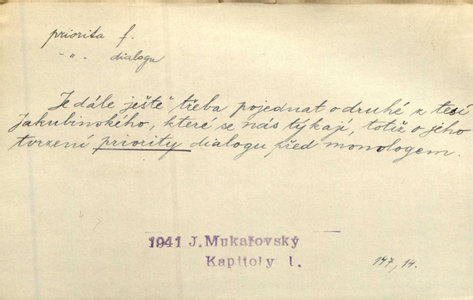 priorita f.
-"- dialogu
Je dále ještě třeba pojednat o druhé z tesí
Jakubinského, které se nás týkají, totiž o jeho
tvrzení priority dialogu před monologem.
1941 J. Mukařovský
Kapitoly I.
147, 14.